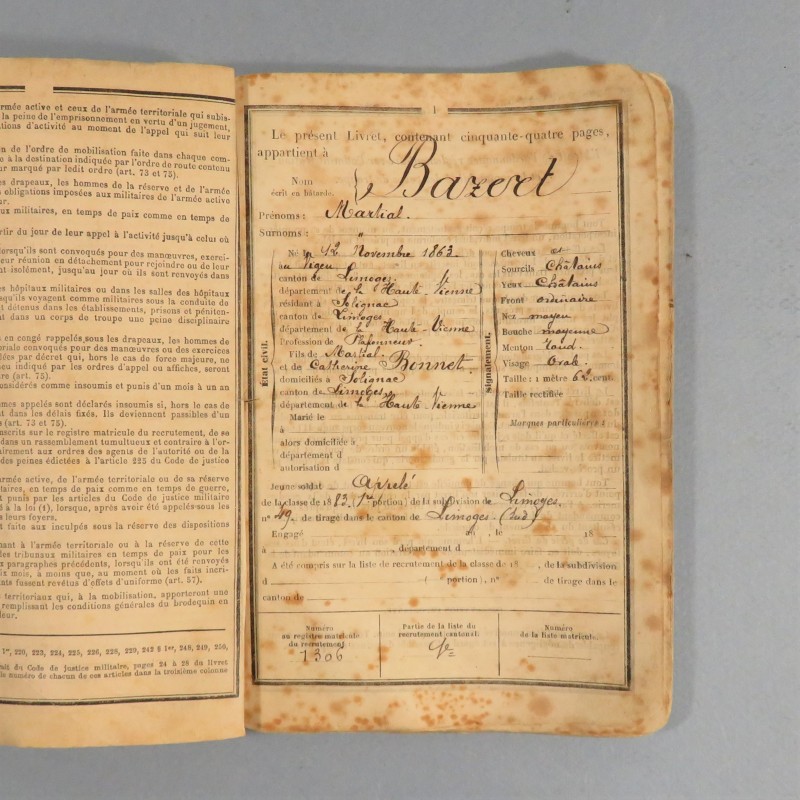 rmée active et ceux de l'armée territoriale qui subis-
la peine de l'emprisonnement en vertu d'un jugement,
ations d'activité au moment de l'appel qui suit leur
on de l'ordre de mobilisation faite dans chaque com-
e à la destination indiquée par l'ordre de route contenu
ur marqué par ledit ordre (art. 73 et 75).
es drapeaux, les hommes de la réserve et de l'armée
obligations imposées aux militaires de l'armée active
ur.
ux militaires, en temps de paix comme en temps de
rtir du jour de leur appel à l'activité jusqu'à celui où
lorsqu'ils sont convoqués pour des manœuvres, exerci-
eur réunion en détachement pour rejoindre ou de leur
nt isolément, jusqu'au jour où ils sont renvoyés dans
es hôpitaux militaires ou dans les salles des hôpitaux
squ'ils voyagent comme militaires sous la conduite de
t détenus dans les établissements, prisons et péniten-
nt dans un corps de troupe une peine disciplinaire
en congé rappelés sous les drapeaux, les hommes de
toriale convoqués pour des manœuvres ou des exercices
ées par décret qui, hors le cas de force majeure, ne
eu indiqué par les ordres d'appel ou affiches, seront
ire.
onsidérés comme insoumis et punis d'un mois à un an
mmes appelés sont déclarés insoumis si, hors le cas de
nt dans les délais fixés. Ils deviennent passibles d'un
s (art. 73 et 75).
nscrits sur le registre matricule du recrutement, de sa
dans un rassemblement tumultueux et contraire à l'or-
airement aux ordres des agents de l'autorité ou de la
des peines édictées à l'article 225 du Code de justice
armée active, de l'armée territoriale ou de sa réserve
ilitaires, en temps de paix comme en temps de guerre,
punis par les articles du Code de justice militaire
à la loi (1), lorsque, après avoir été appelés sous les
leurs foyers.
t faite aux inculpés sous la réserve des dispositions
nant à l'armée territoriale ou à la réserve de cette
des tribunaux militaires en temps de paix pour les
x paragraphes précédents, lorsqu'ils ont été renvoyés
ix mois, à moins que, au moment où les faits incri-
nts fussent revêtus d'effets d'uniforme (art. 57).
e territoriaux qui, à la mobilisation, apporteront une
remplissant les conditions générales du brodequin en
leur.
1er, 220, 222, 224, 225, 226, 228, 229, 242 § 1er, 248, 249, 250,
rait du Code de justice militaire, pages 24 à 28 du livret
le numéro de chacun de ces articles dans la troisième colonne
1
Le présent Livret, contenant cinquante-quatre pages,
appartient à
Nom écrit en bâtarde. Bazert
Prénoms : Martial.
Surnoms : "
État civil.
Né le 12 Novembre 1863.
au Vigeu
canton de Limoges.
département de la Haute-Vienne
résidant à Solignac
canton de Limoges
département de la Haute-Vienne
Profession de Plafonneur
Fils de Martial
et de Catherine Bonnet
domiciliés à Solignac
canton de Limoges
département de la Haute Vienne
Marié le
à
alors domiciliée à
département d
autorisation d
signalement.
Cheveux et
Sourcils Châtains
Yeux Châtains
Front ordinaire
Nez moyen
Bouche moyenne
Menton rond
Visage Ovale
Taille : 1 mètre 62 cent.
Taille rectifiée
Marques particulières :
Jeune soldat Appelé
de la classe de 1883 (1re portion) de la subdivision de Limoges,
n° 49 de tirage dans le canton de Limoges (Sud)
Engagé , le 18
à , département d
A été compris sur la liste de recrutement de la classe de 18 , de la subdivision
d ( portion), n° de tirage dans le
canton de
Numéro
au registre matricule
du recrutement:
1306
Partie de la liste du
recrutement cantonal:
Numéro
de la liste matricule.